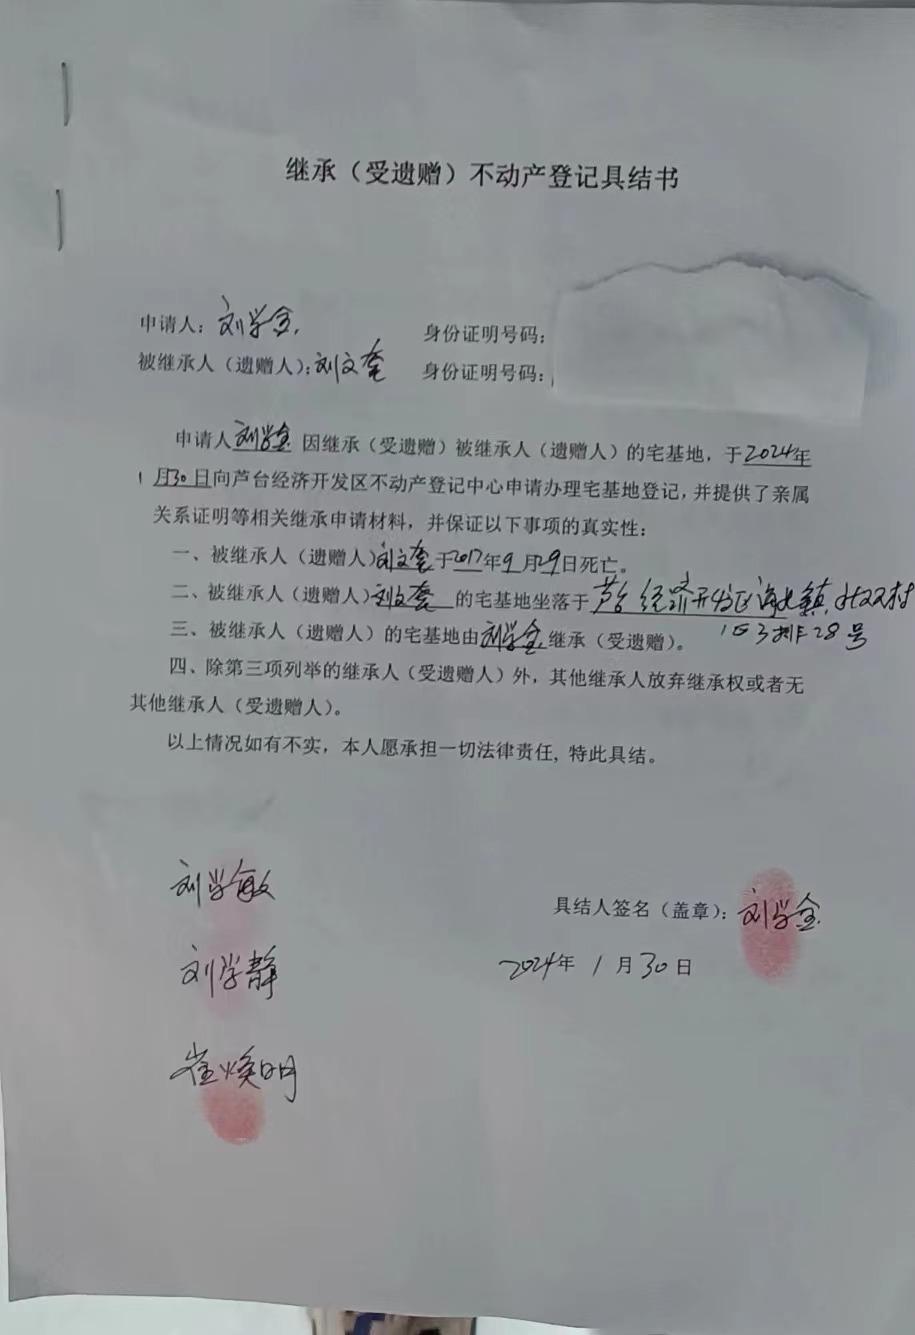 继承（受遗赠）不动产登记具结书
申请人：刘学金 身份证明号码：
被继承人（遗赠人）：刘文奎 身份证明号码：
申请人刘学金因继承（受遗赠）被继承人（遗赠人）的宅基地，于2024年
1月30日向芦台经济开发区不动产登记中心申请办理宅基地登记，并提供了亲属
关系证明等相关继承申请材料，并保证以下事项的真实性：
一、被继承人（遗赠人）刘文奎于2017年9月29日死亡。
二、被继承人（遗赠人）刘文奎的宅基地坐落于芦台经济开发区海北镇
1区3排28号
三、被继承人（遗赠人）的宅基地由刘学金继承（受遗赠）。
四、除第三项列举的继承人（受遗赠人）外，其他继承人放弃继承权或者无
其他继承人（受遗赠人）。
以上情况如有不实，本人愿承担一切法律责任，特此具结。
刘学敏
具结人签名（盖章）：刘学金
刘学静
2024年1月30日
崔焕明